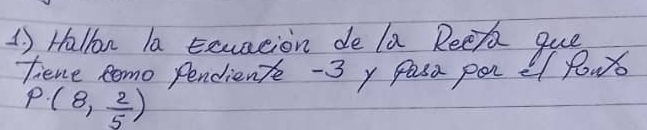 1.) Hallar la Ecuación de la Recta que
Tiene como Pendiente -3 y Pasa por el Punto
P.(8, 2/5)